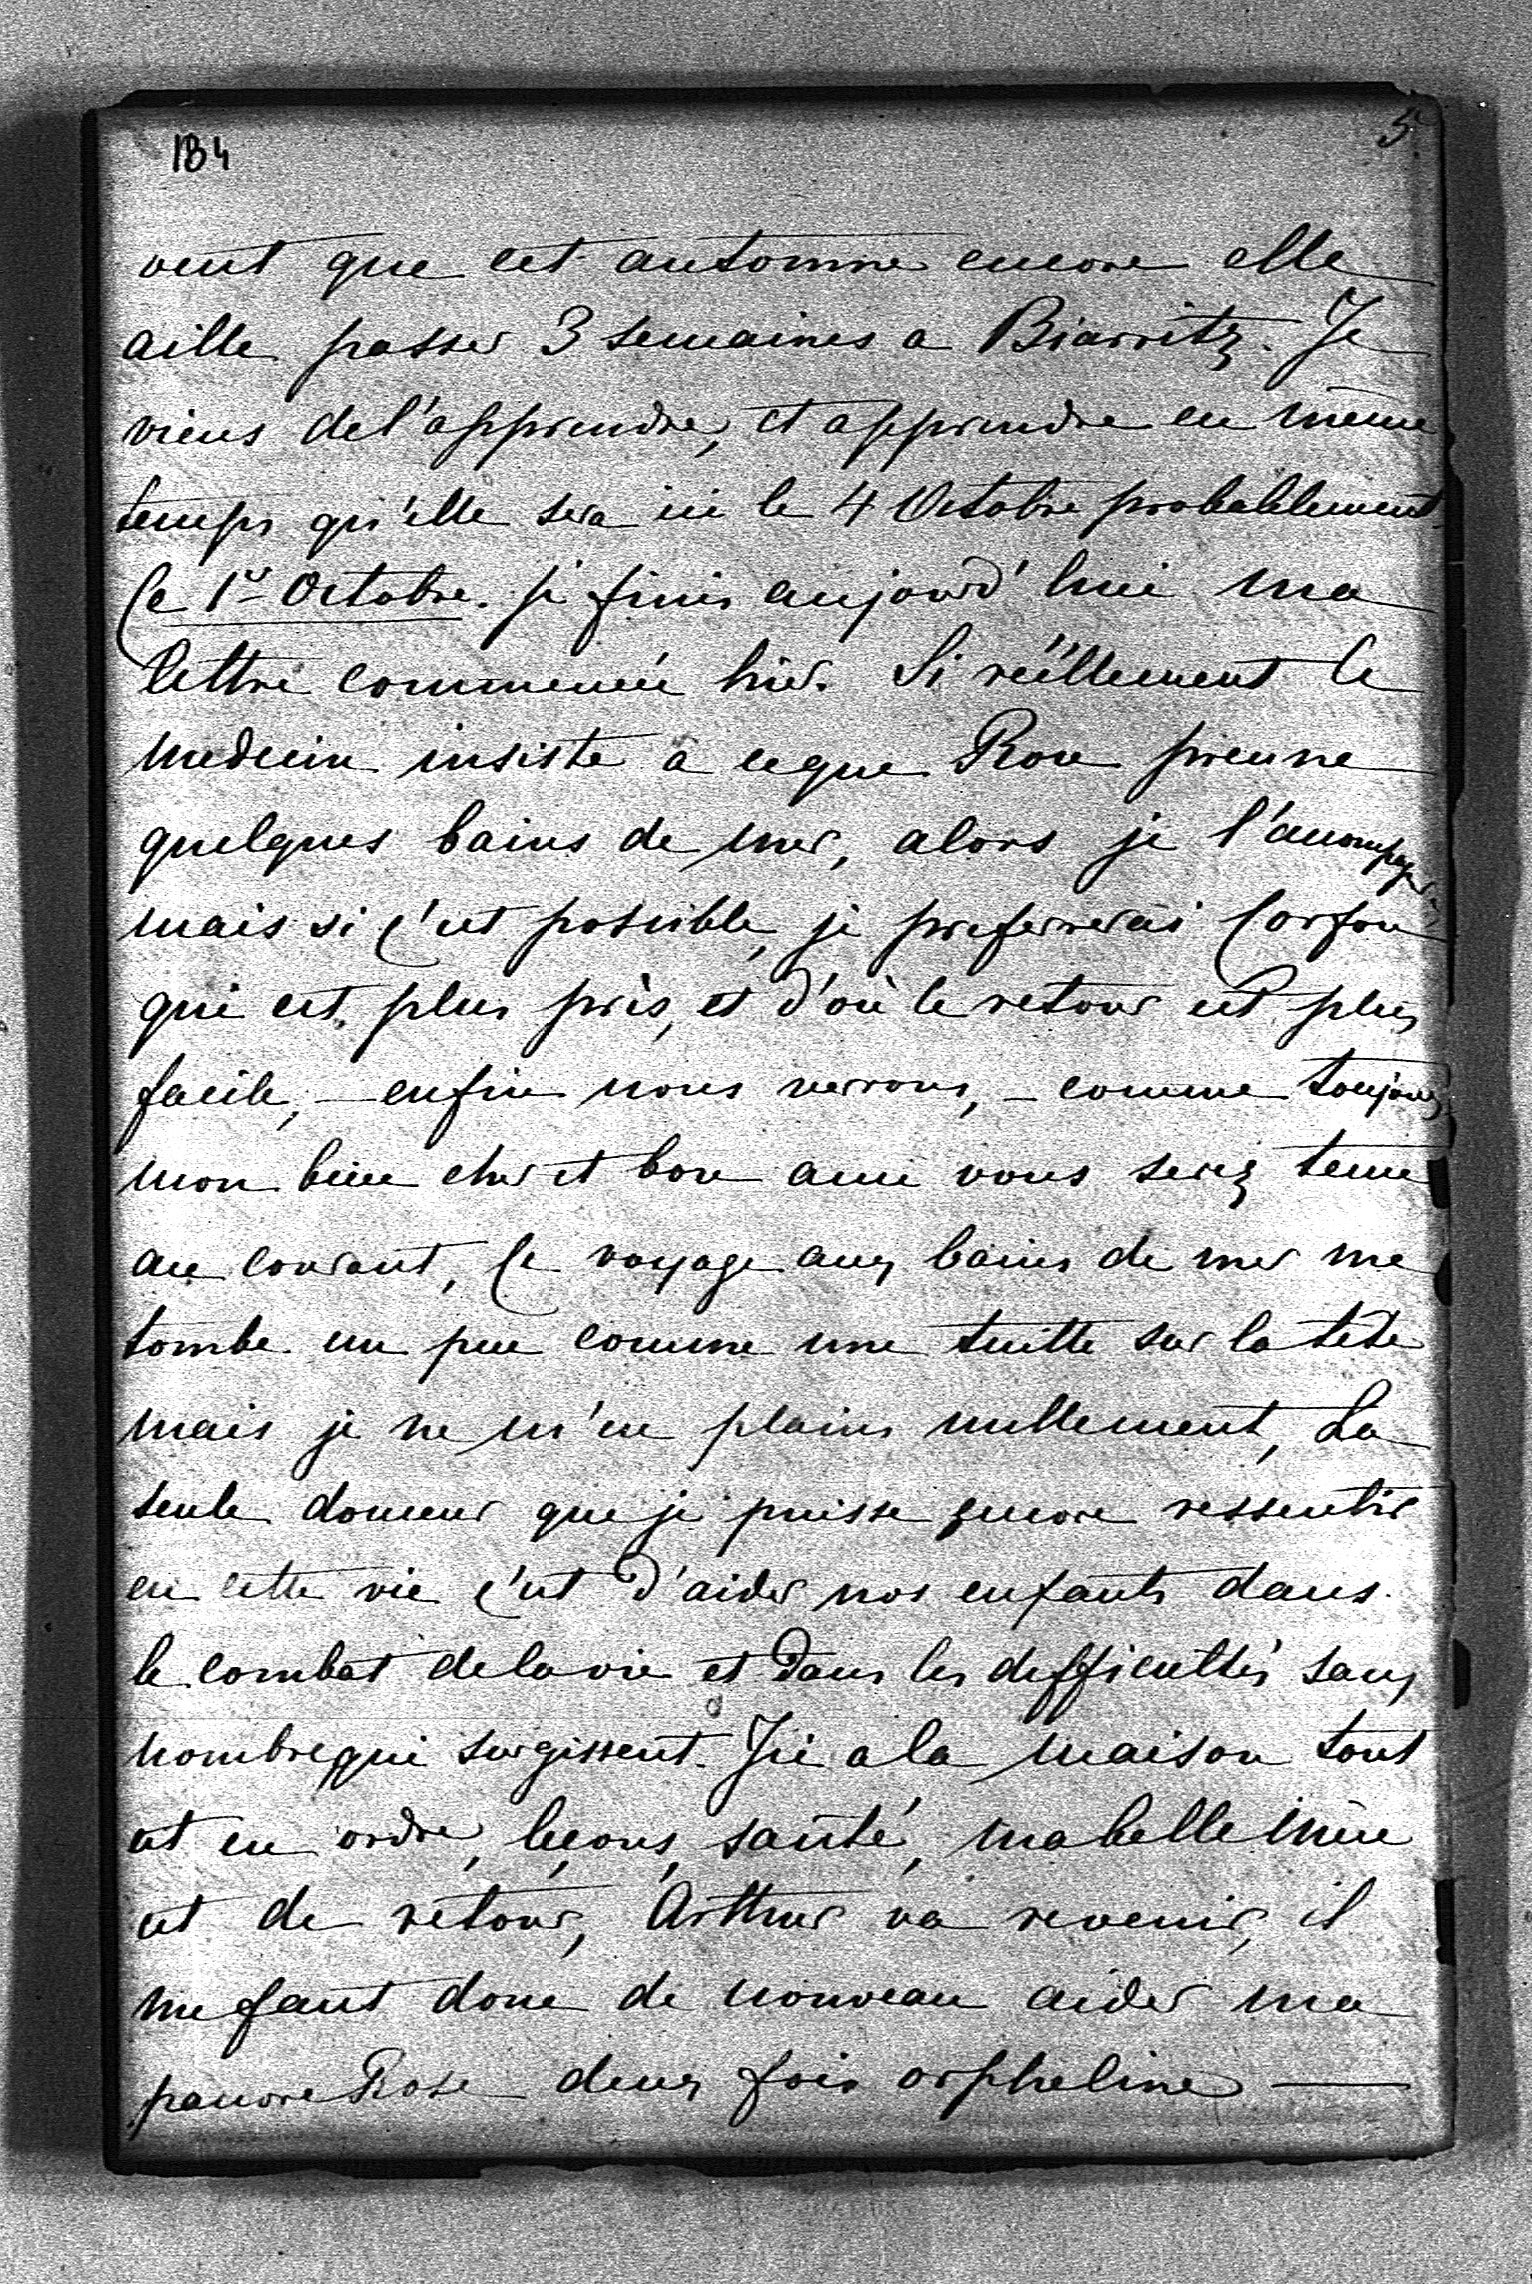 184
5.
veut que cet automne encore elle
aille passer 3 semaines a Biarritz. Je
viens de l'apprendre, et apprendre en même
temps qu'elle sera ici le 4 Octobre probablement.
Ce 1er Octobre. Je finis aujourd'hui ma
lettre commencée hier. Si réellement le
medecin insiste a ce que Rose prenne
quelques bains de mer, alors je l'accompagnerai,
mais si c'est possible, je prefererais Corfou
qui est plus près, et d'où le retour est plus
facile, – enfin nous verrons, – comme toujours
mon bien cher et bon ami vous serez tenu
au courant, Ce voyage aux bains de mer me
tombe un peu comme une tuille sur la tête
mais je ne m'en plains nullement, La
seule douceur que je puisse encore ressentir
en cette vie c'est d'aider nos enfants dans
le combat de la vie et dans les difficultés sans
nombre qui surgissent. Ici a la maison tout
est en ordre, leçons, santé, ma belle mère
est de retour, Arthur va revenir, il
me faut donc de nouveau aider ma
pauvre Rose deux fois orpheline —